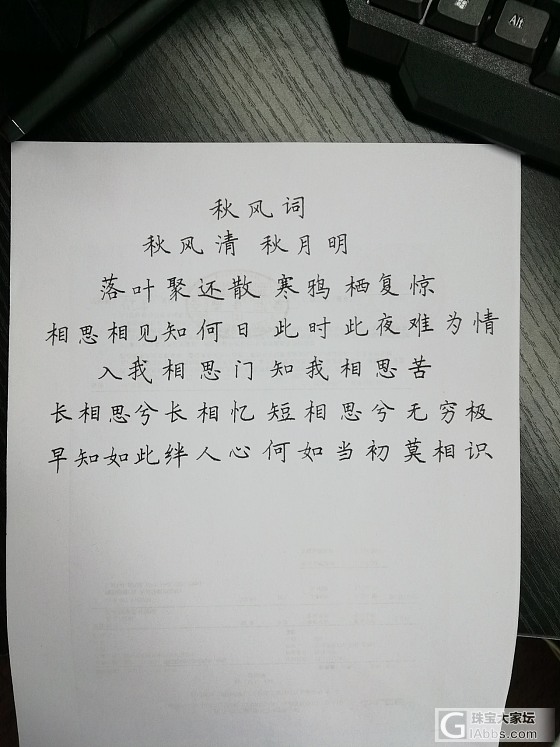 Alt
秋风词
秋风清 秋月明
落叶聚还散 寒鸦栖复惊
相思相见知何日 此时此夜难为情
入我相思门 知我相思苦
长相思兮长相忆 短相思兮无穷极
早知如此绊人心 何如当初莫相识
珠宝大家坛
GIAbbs.com